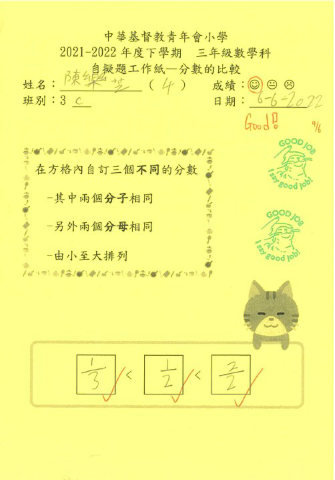 中華基督教青年會小學
2021-2022 年度下學期 三年級數學科
自擬題工作紙—分數的比較
姓名：陳樂芝 ( 4 ) 成績：
班別：3 C 日期：6-6-2022
Good! 9/6
GOOD JOB
I say good job!
在方格內自訂三個不同的分數
-其中兩個分子相同
-另外兩個分母相同
-由小至大排列
GOOD JOB
I say good job!
1/3 < 1/2 < 2/2